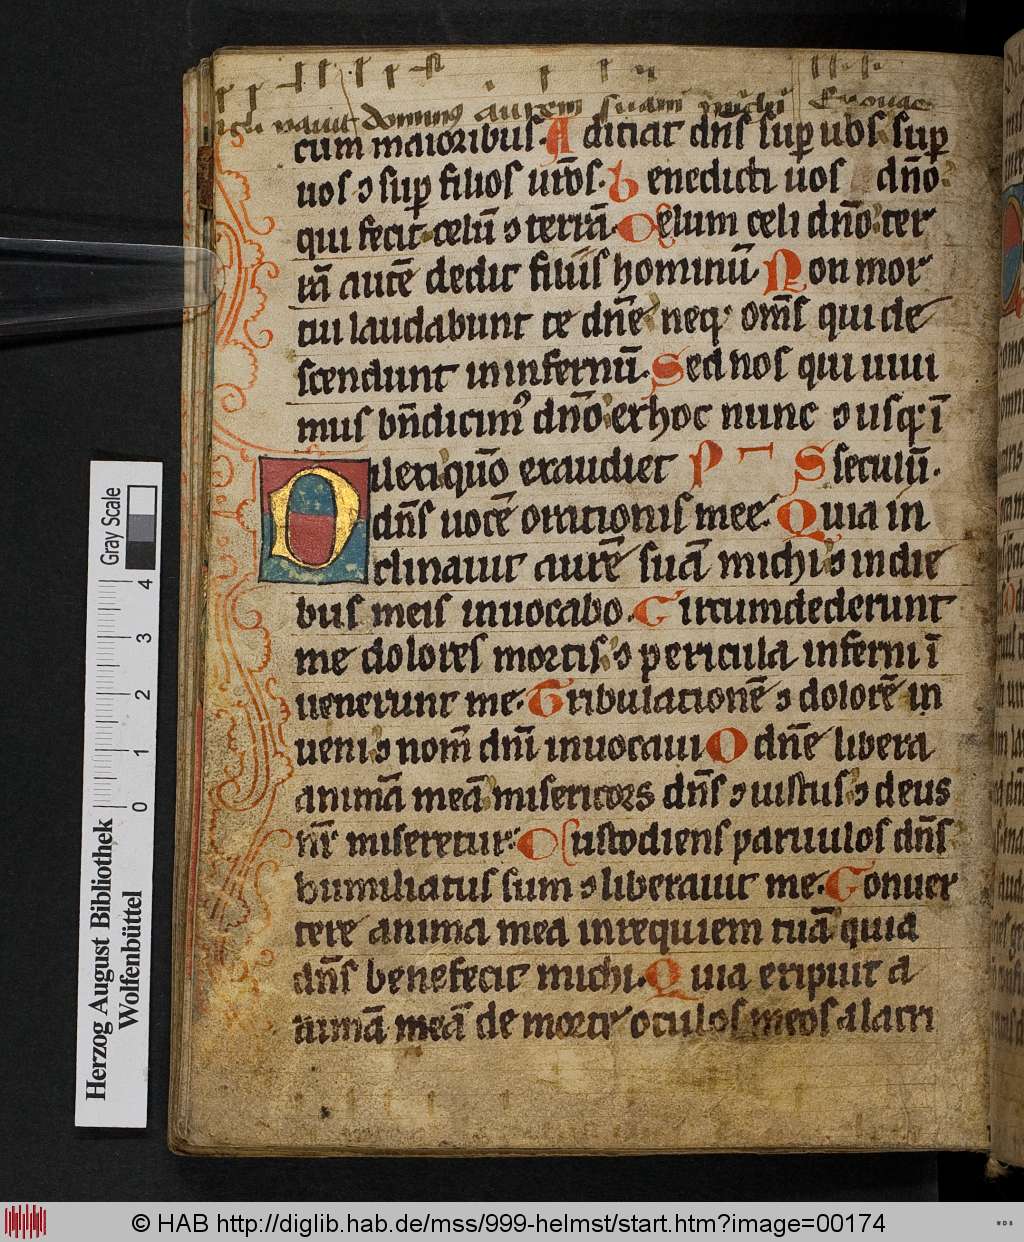 vauit dominus aurem suam michi Euouae
cum maioribus. Adiciat dn̄s sup̱ uos sup̱
uos ⁊ sup̱ filios ur̄os. benedicti uos dn̄o
qui fecit celū ⁊ terrā. Celum celi dn̄o ter
rā autē dedit filiis hominū. Non mor
tui laudabunt te dn̄e neq; om̄s qui de
scendunt in infernū. Sed nos qui uiui
mus bn̄dicimꝰ dn̄o ex hoc nunc ⁊ usq; ī
Dilexi qūo exaudiet P S seculū.
dn̄s uocē orationis mee. Quia in
clinauit aurē suā michi ⁊ in die
bus meis inuocabo. Circumdederunt
me dolores mortis ⁊ pericula inferni ī
uenerunt me. Tribulationē ⁊ dolorē in
ueni ⁊ nom̄ dn̄i inuocaui O dn̄e libera
animā meā misericors dn̄s ⁊ iustus ⁊ deus
nr̄ miseretur. Custodiens paruulos dn̄s
humiliatus sum ⁊ liberauit me. Conuer
tere anima mea in requiem tuā quia
dn̄s benefecit michi. Quia eripuit a
nimā meā de morte oculos meos a lacri
Gray Scale
4
3
2
1
0
Herzog August Bibliothek
Wolfenbüttel
© HAB http://diglib.hab.de/mss/999-helmst/start.htm?image=00174